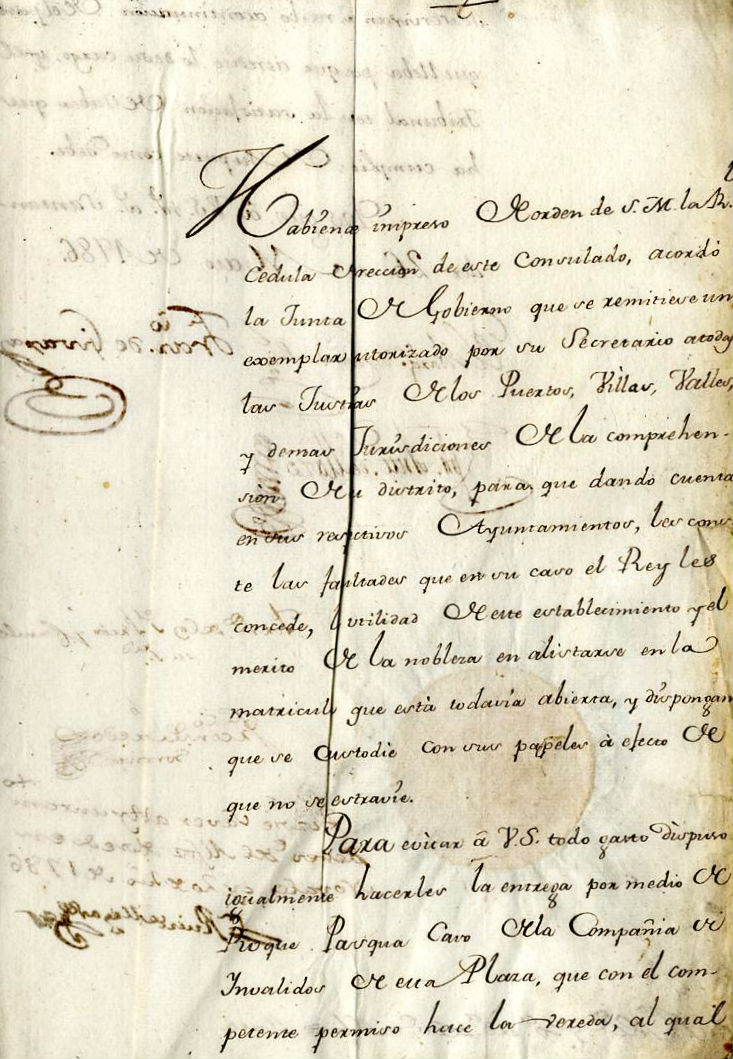 Habiendo impreso de orden de S. M. la R.
Cedula ereccion de este Consulado, acordó
la Junta de Gobierno que se remitiese un
exemplar autorizado por su Secretario a todas
las Justas de los Puertos, Villas, Valles,
y demas Jurisdiciones de la comprehen-
sion de su distrito, para que dando cuenta
en sus respectivos Ayuntamientos, les cons-
te las facultades que en su caso el Rey les
concede, la utilidad de este establecimiento y el
merito de la nobleza en alistarse en la
matricula que está todavia abierta, y dispongan
que se Custodie con sus papeles à efecto de
que no se estravie.
Para evitar á V. S. todo gasto dispuso
igualmente hacerles la entrega por medio de
Roque Pasqua Cavo de la Compañia de
Invalidos de esta Plaza, que con el com-
petente permiso hace la vereda, al qual
Fran.co de